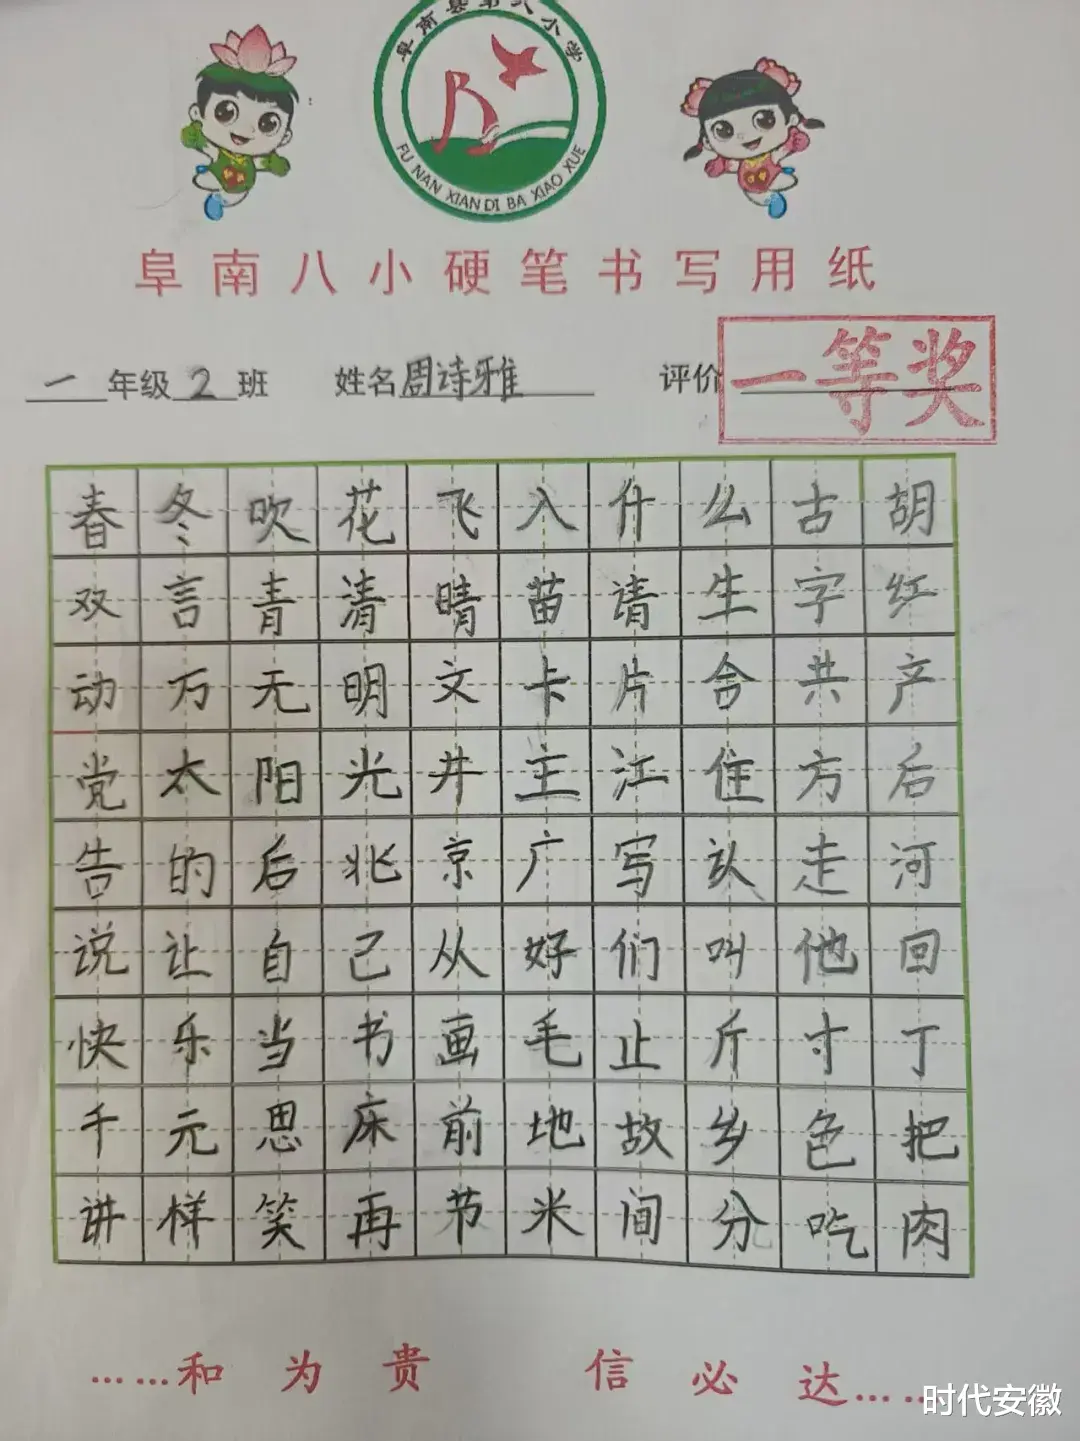 阜南县第八小学
FU NAN XIAN DI BA XIAO XUE
阜南八小硬笔书写用纸
一年级2班 姓名周诗雅 评价 一等奖
春冬吹花飞入什么古胡
双言青清晴苗请生字红
动万无明文卡片合共产
党太阳光井主江住方后
告的后北京广写认走河
说让自己从好们叫他回
快乐当书画毛止斤寸丁
千元思床前地故乡色把
讲样笑再节米间分吃肉
……和为贵 信必达……
时代安徽